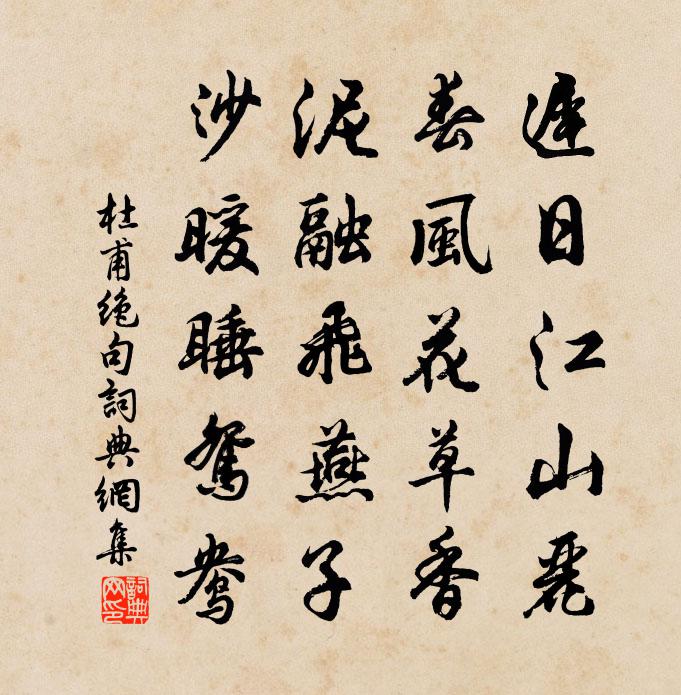 遲日江山麗
春風花草香
泥融飛燕子
沙暖睡鴛鴦
杜甫絶句詞典網集
詞典
网印